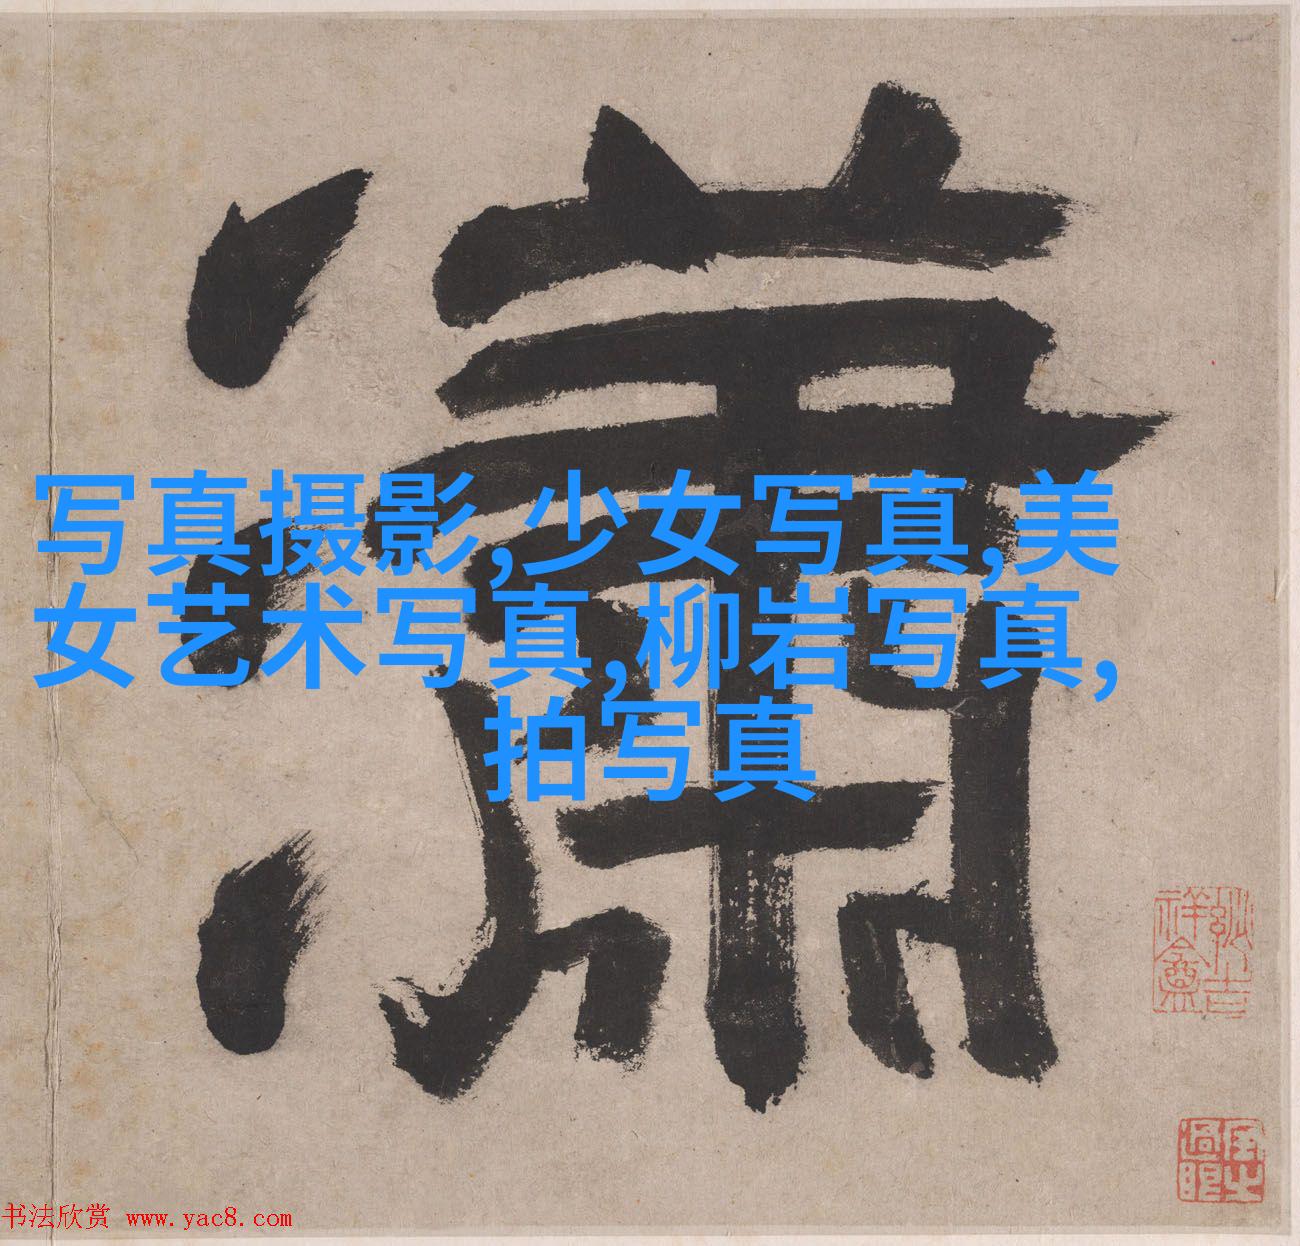 瀟
写真摄影,少女写真,美
女艺术写真,柳岩写真,
拍写真
书法欣赏 www.yac8.com